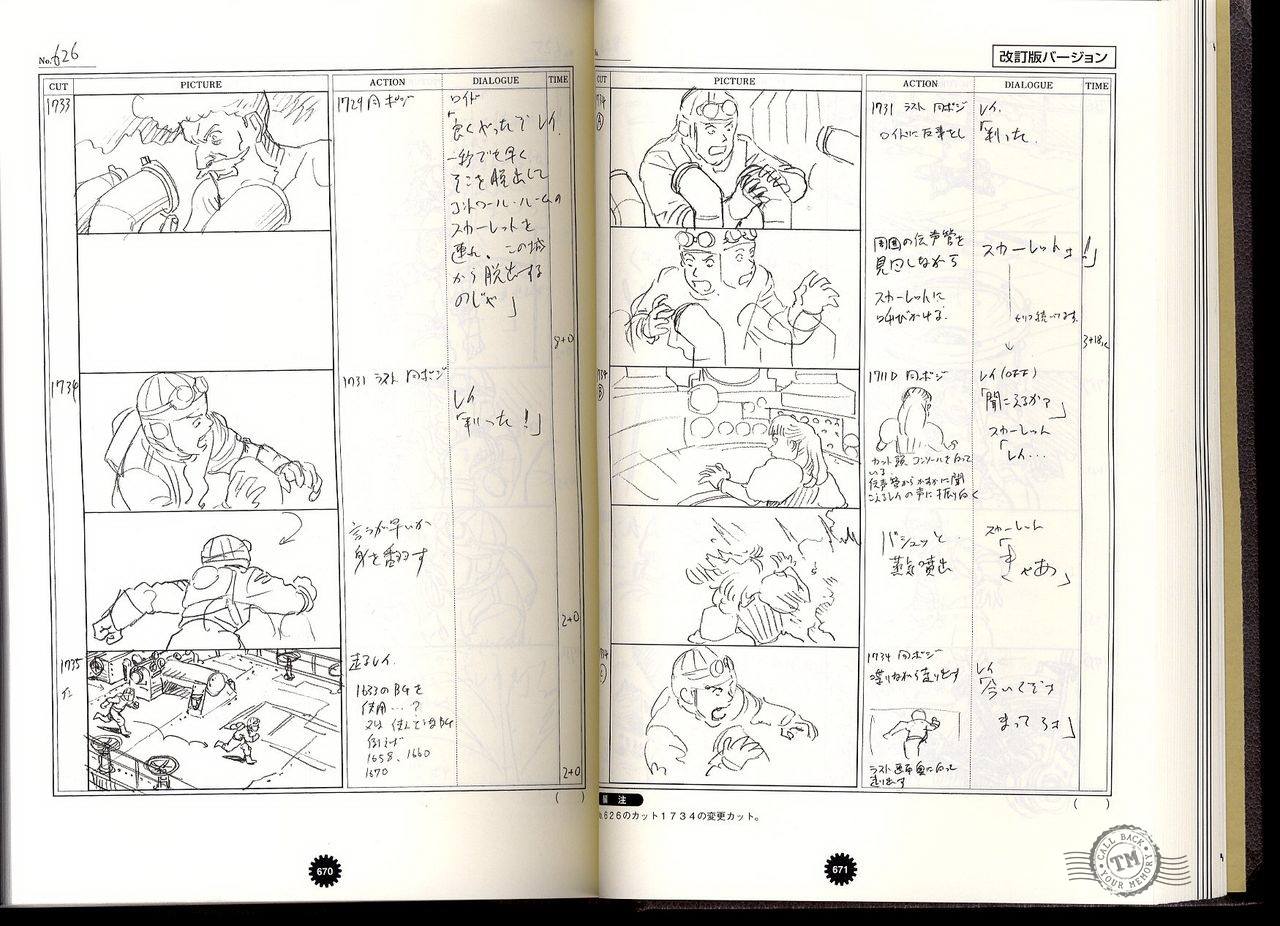 No.626
CUT PICTURE ACTION DIALOGUE TIME
1733
1729 同ポジ
ロイド
「良くやったでレイ、
一秒でも早く
そこを脱出して
コントロール・ルームの
スカーレットを
連れ、この城
から脱出する
のじゃ」
9+0
1734
1731 ラスト 同ポジ
レイ
「判った!」
言うが早いか
身を翻す
2+0
1735
走るレイ。
1633のBGを
使用…?
1658、1660
1670
2+0
670
改訂版バージョン
CUT PICTURE ACTION DIALOGUE TIME
A
1731 ラスト 同ポジ
ロイドに返事をし
レイ、
「判った、
周囲の伝声管を
見回しながら
スカーレットに
呼びかける、
スカーレットは!!」
3+18
B
1711D 同ポジ
カット頭 コンソールを向って
いる、
伝声管からかすかに聞
こえるレイの声に振り向く
「聞こえるか?」
スカーレット
「レイ…
バシュッと
蒸気噴出
スカーレット
「きゃあ」
C
1734 同ポジ
喋りながら走り出す
ラスト
走り出す
レイ
「今いくぞ
まってろよ」
備 注
No.626のカット1734の変更カット。
671
CALL BACK
TM
YOUR MEMORY